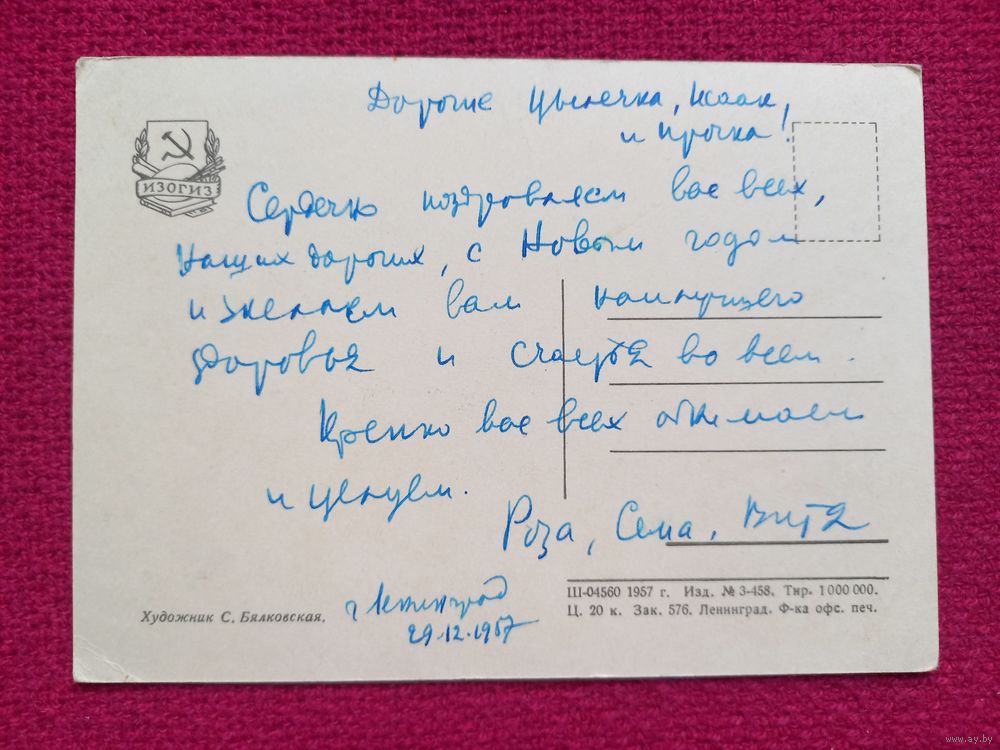 Дорогие Цылечка, Исаак,
и Ирочка!
ИЗОГИЗ
Сердечно поздравляем вас всех,
наших дорогих, с Новым годом
и желаем вам наилучшего
здоровья и счастья во всем.
Крепко вас всех обнимаем
и целуем.
Роза, Сема, Витя
г. Ленинград
29.12.1957
Художник С. Бялковская.
Ш-04560 1957 г. Изд. № 3-458. Тир. 1 000 000.
Ц. 20 к. Зак. 576. Ленинград. Ф-ка офс. печ.
www.ay.by